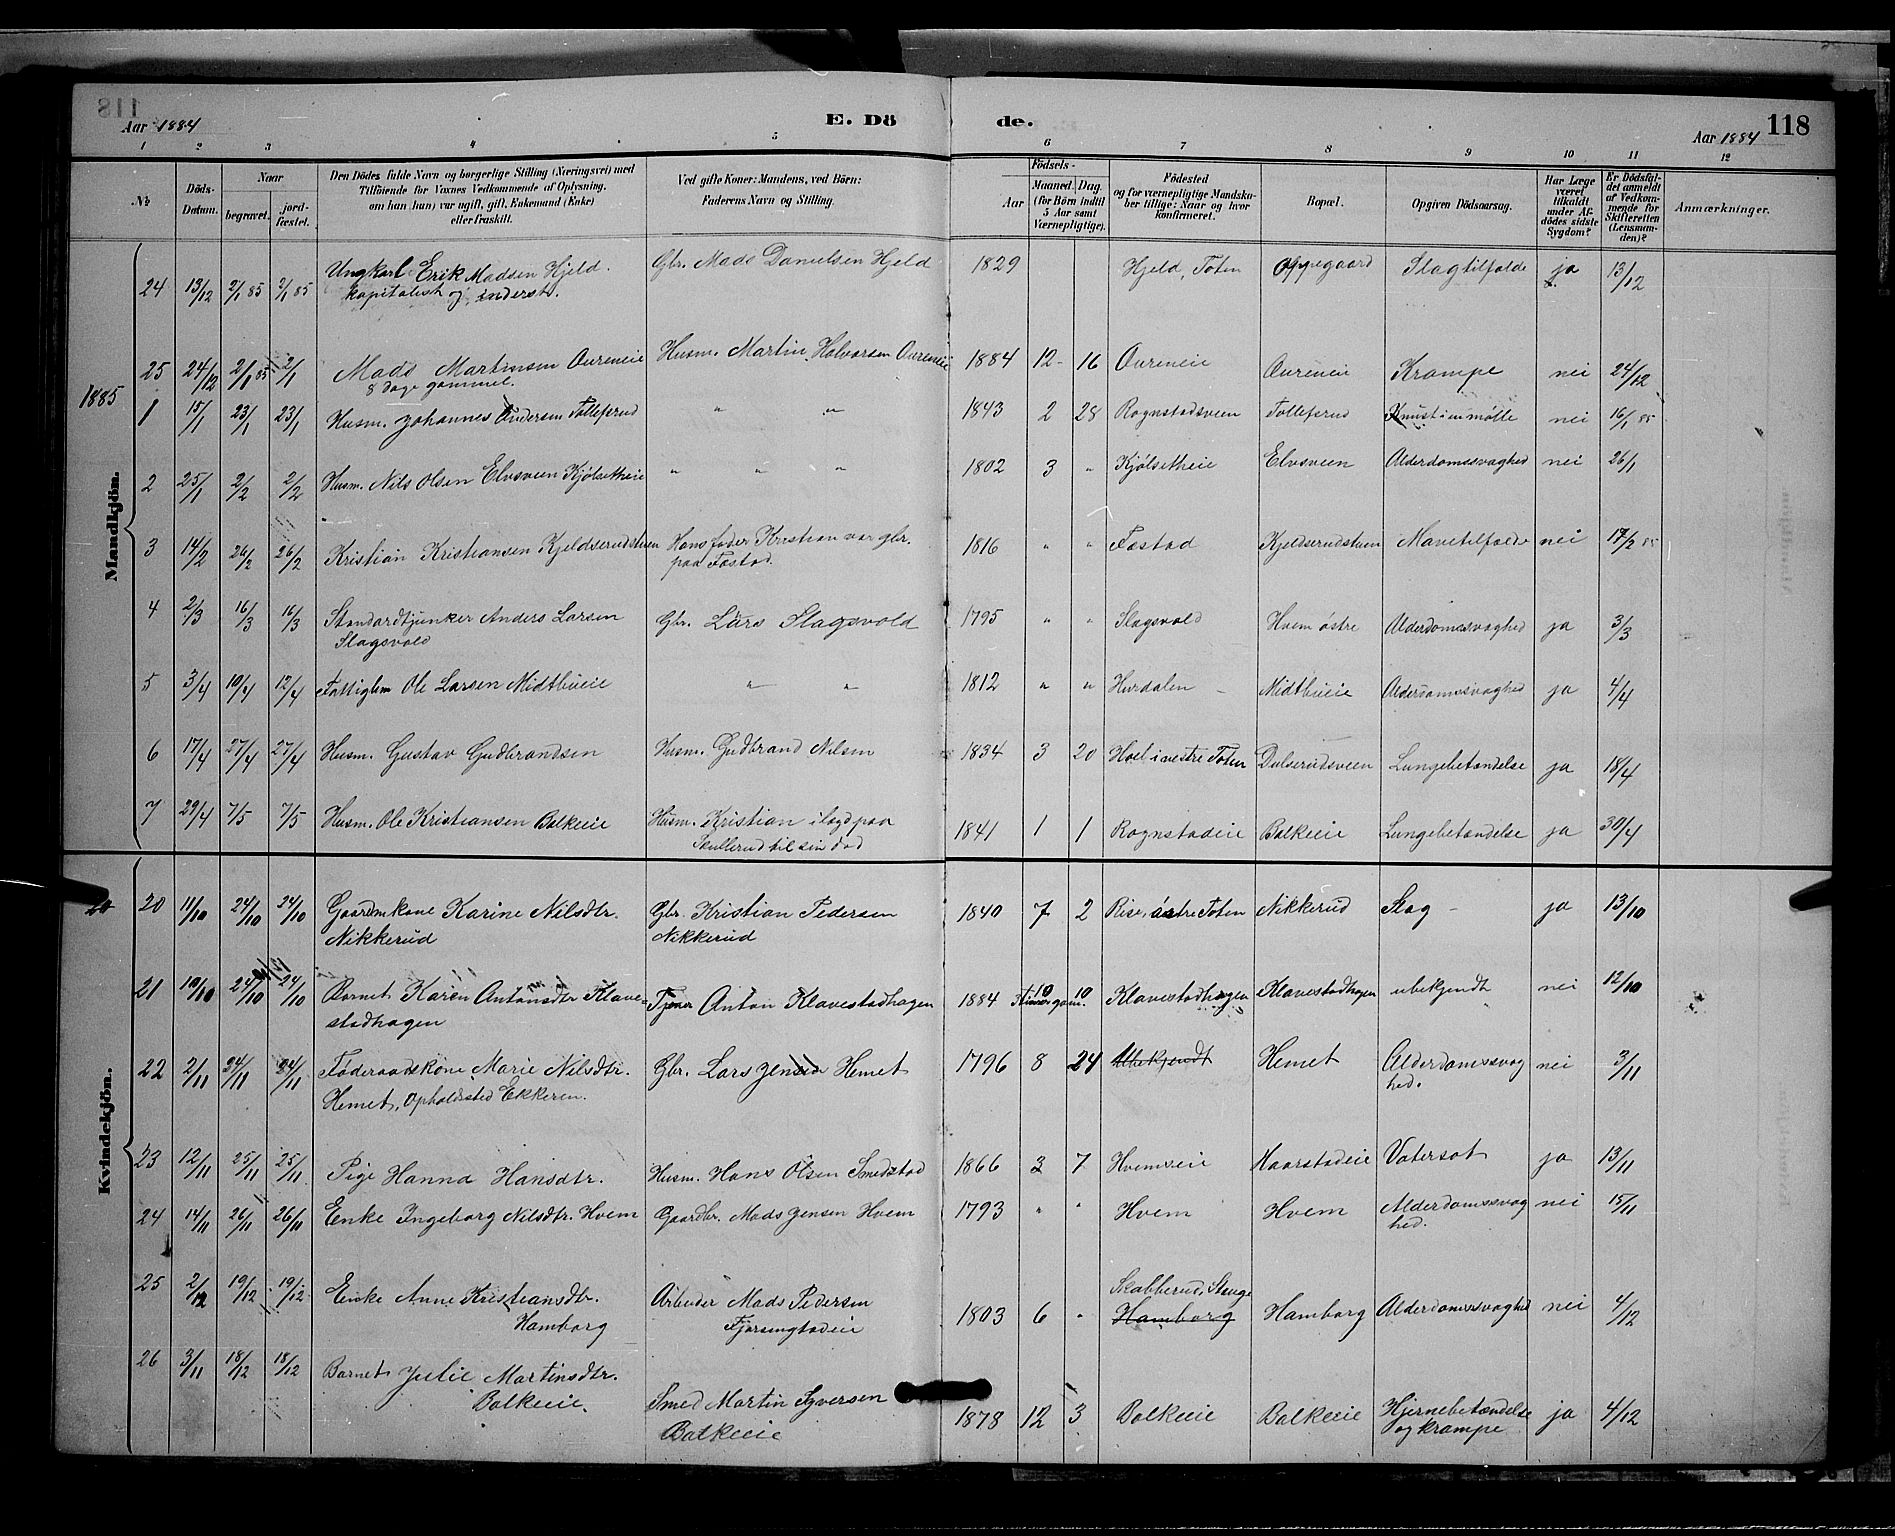 118
Aar 1884
E. Dö
de.
Aar 1884
118
1 2 3 4 5 6 7 8 9 10 11 12
№
Döds-Datum.
Naar
begravet.
jord-fæstet.
Den Dödes fulde Navn og borgerlige Stilling (Næringsvei) med
Tilföiende for Voxnes Vedkommende af Oplysning,
om han (hun) var ugift, gift, Enkemand (Enke)
eller fraskilt.
Ved gifte Koner: Mandens, ved Börn:
Faderens Navn og Stilling.
Födsels-
Aar
Maaned. Dag.
(for Börn indtil
5 Aar samt
Værnepligtige).
Födested
og for værnepligtige Mandska-
ber tillige: Naar og hvor
konfirmeret.
Bopæl.
Opgiven Dödsaarsag.
Har Læge
været
tilkaldt
under Af-
dödes sidste
Sygdom?
Er Dödsfal-
det anmeldt
af Vedkom-
mende for
Skifteretten
(Lensman-
den)?
Anmærkninger.
Mandkjön.
24 13/12 2/1 85 2/1 85 Ungkarl Erik Madsen Hjeld. Gbr. Mads Danielsen Hjeld 1829 Hjeld, Toten Oppegaard Slagtilfælde ja 13/12
kapitalist og inderst.
25 24/12 2/1 85 2/1 Mads Martinsen Aureneie Husm. Martin Halvorsen Aureneie 1884 12 - 16 Aureneie Aureneie Krampe nei 24/12
8 dage gammel.
1885
1 15/1 23/1 23/1 Husm. Johannes Andersen Tollefsrud " " 1843 2 28 Rognstadsveen Tollefsrud Knust i en mølle nei 16/1 85
2 25/1 2/2 2/2 Husm. Nils Olsen Elvsveen Kjølsetheie " " " 1802 3 " Kjølsetheie Elvsveen Alderdomssvaghed nei 26/1
3 14/2 26/2 26/2 Kristian Kristiansen Kjeldserudstuen Hans fader Kristian var gbr. 1816 " " Fostad Kjeldserudstuen Mavetilfælde nei 17/2 85
paa Fostad.
4 2/3 16/3 16/3 Standardtjunker Anders Larsen Gbr. Lars Slagsvold 1795 " " Slagsvold Hvem østre Alderdomssvaghed ja 3/3
Slagsvold
5 3/4 10/4 12/4 Fattiglem Ole Larsen Midtbueie " " 1812 " " Hurdalen - Midtbueie Alderdomssvaghed ja 4/4
6 17/4 27/4 27/4 Husm. Gustav Gudbrandsen Husm. Gudbrand Nilsen 1834 3 20 Hoel i vestre Toten Dulserudsveen Lungebetændelse ja 18/4
7 29/4 7/5 7/5 Husm. Ole Kristiansen Balkeeie Husm. Kristian i lægd paa 1841 1 1 Rognstadeie Balkeeie Lungebetændelse ja 30/4
Skullerud til sin død
Kvindekjön.
20 20 11/10 24/10 24/10 Gaardmkone Karine Nilsdtr. Gbr. Kristian Pedersen 1840 7 2 Rise, østre Toten Nikkerud Slag - ja 13/10
Nikkerud Nikkerud
21 10/10 24/10 24/10 Barnet Karen Antonsdtr Klave- Tjener Anton Klavestadhagen 1884 10 10 Klavestadhagen Klavestadhagen ubekjendt nei 12/10
stadhagen
22 2/11 24/11 24/11 Føderaadskone Marie Nilsdtr. Gbr. Lars Jensen Hemet 1796 8 24 Ubekjendt Hemet Alderdomssvag nei 3/11
Hemet, Opholdssted Ekkeren. hed.
23 12/11 25/11 25/11 Pige Hanna Hansdtr. Husm. Hans Olsen Smedstad 1866 3 7 Hvemseie Haarstadeie Vatersot ja 13/11
24 14/11 26/11 26/11 Enke Ingeborg Nilsdtr. Hvem Gaardbr. Mads Jensen Hvem 1793 " " Hvem Hvem Alderdomssvag nei 15/11
hed.
25 2/12 19/12 19/12 Enke Anne Kristiansdtr. Arbeider Mads Pedersen 1803 6 " Skabberud, Stange Hamborg Hamborg Alderdomssvaghed nei 4/12
Hamborg
26 3/11 18/12 18/12 Barnet Julie Martinsdtr. Smed Martin Syversen 1878 12 3 Balkeeie Balkeeie Hjernebetændelse ja 4/12
Balkeeie. Balkeeie og krampe